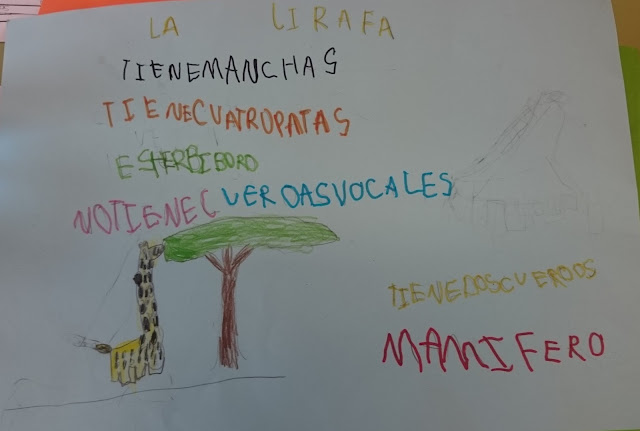 LA JIRAFA
TIENEMANCHAS
TIENECUATROPATAS
ESHERBIBORO
NOTIENECUERDASVOCALES
TIENEDOSCUERDOS
MAMIFERO